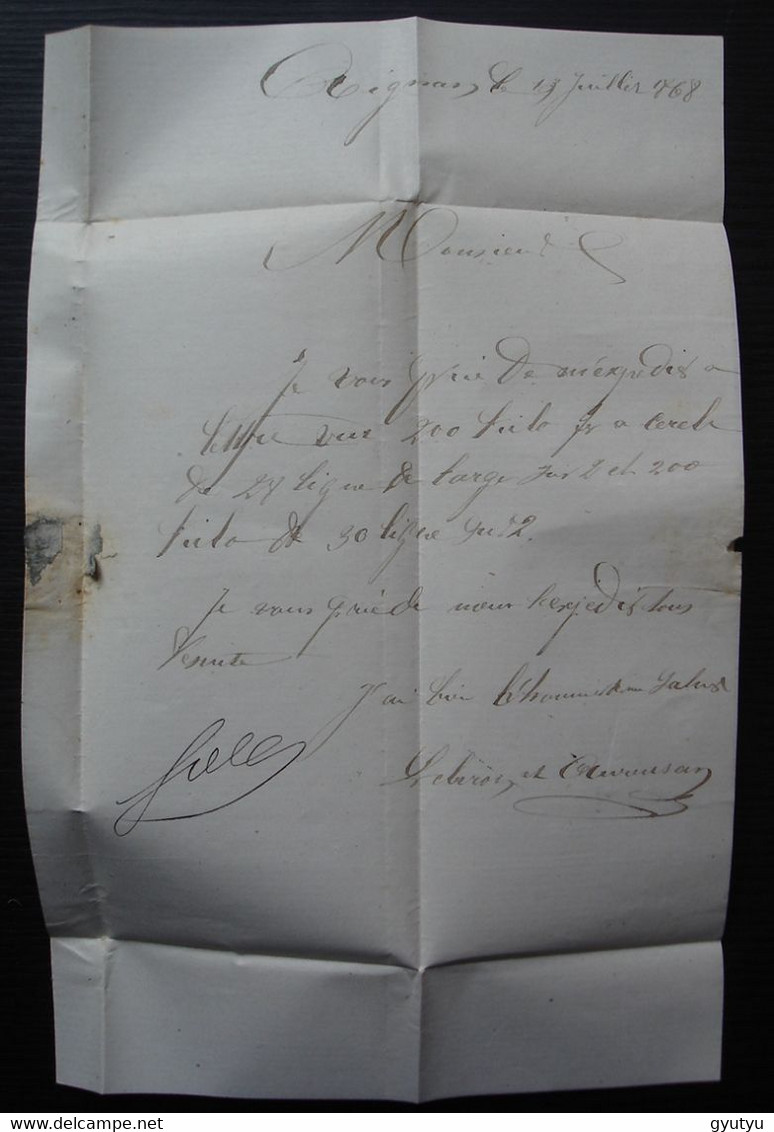 Rignac le 13 Juillet 1868
Monsieur
Je vous prie de m'expedis a
lettre vue 200 kilo fr a cercle
de 28 ligne de large sur 2 et 200
kilo de 30 ligne sur 2.
Je vous prie de nous lexpedis tous
desuite
J'ai bien lhonneur de vous Salus
et
gyutyu